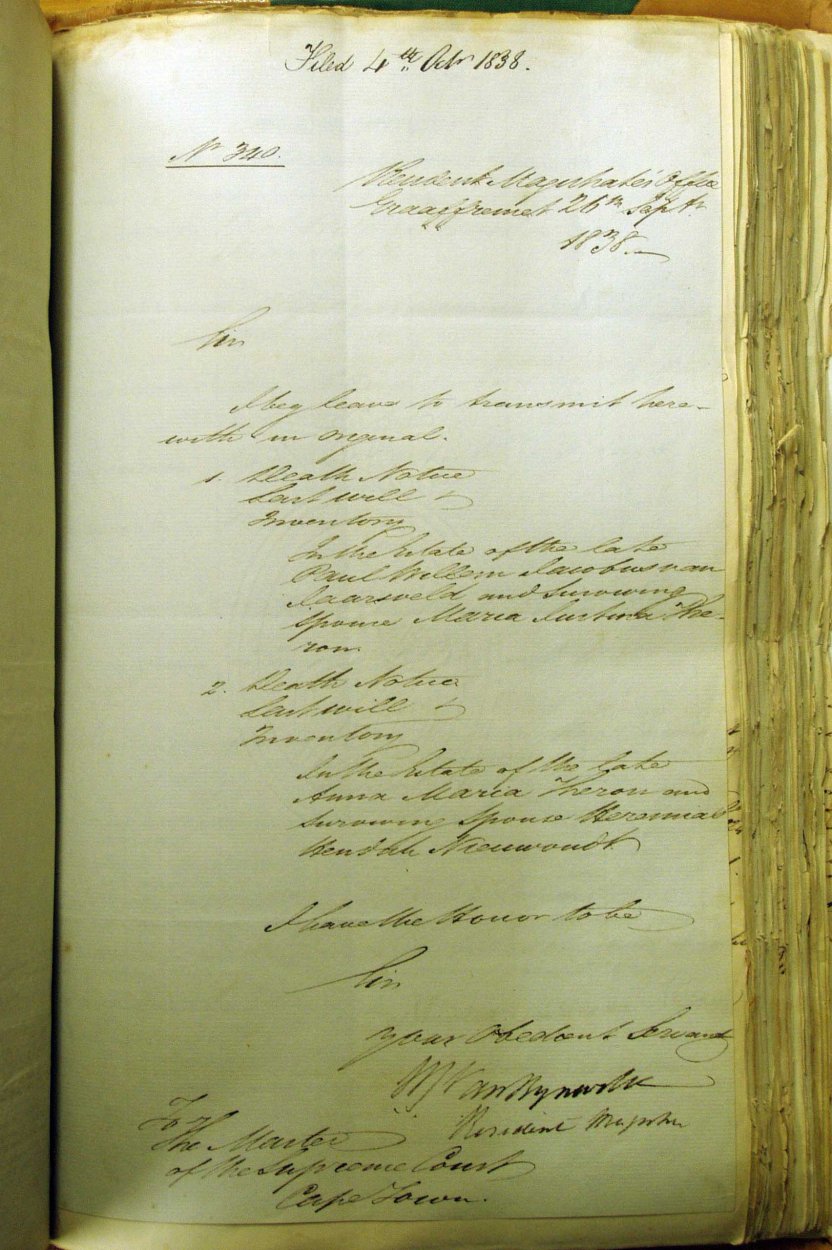 Filed 4th Octr 1838.
No 340.
Resident Magistrate's Office
Graaffreinet 26th Septr
1838.
Sir
I beg leave to transmit here-
with in original.
1. Death Notice
Last will &
Inventory
In the Estate of the late
Paul Willem Jacobus van
Jaarsveld and Surviving
Spouse Maria Justina The-
ron.
2. Death Notice
Last will &
Inventory
In the Estate of the late
Anna Maria Theron and
Surviving Spouse
Nieuwoudt
I have the Honor to be
Sir
your Obedient Servant
Van Ryneveld
Resident Magistr
To
The Master
of the Supreme Court
Cape Town.